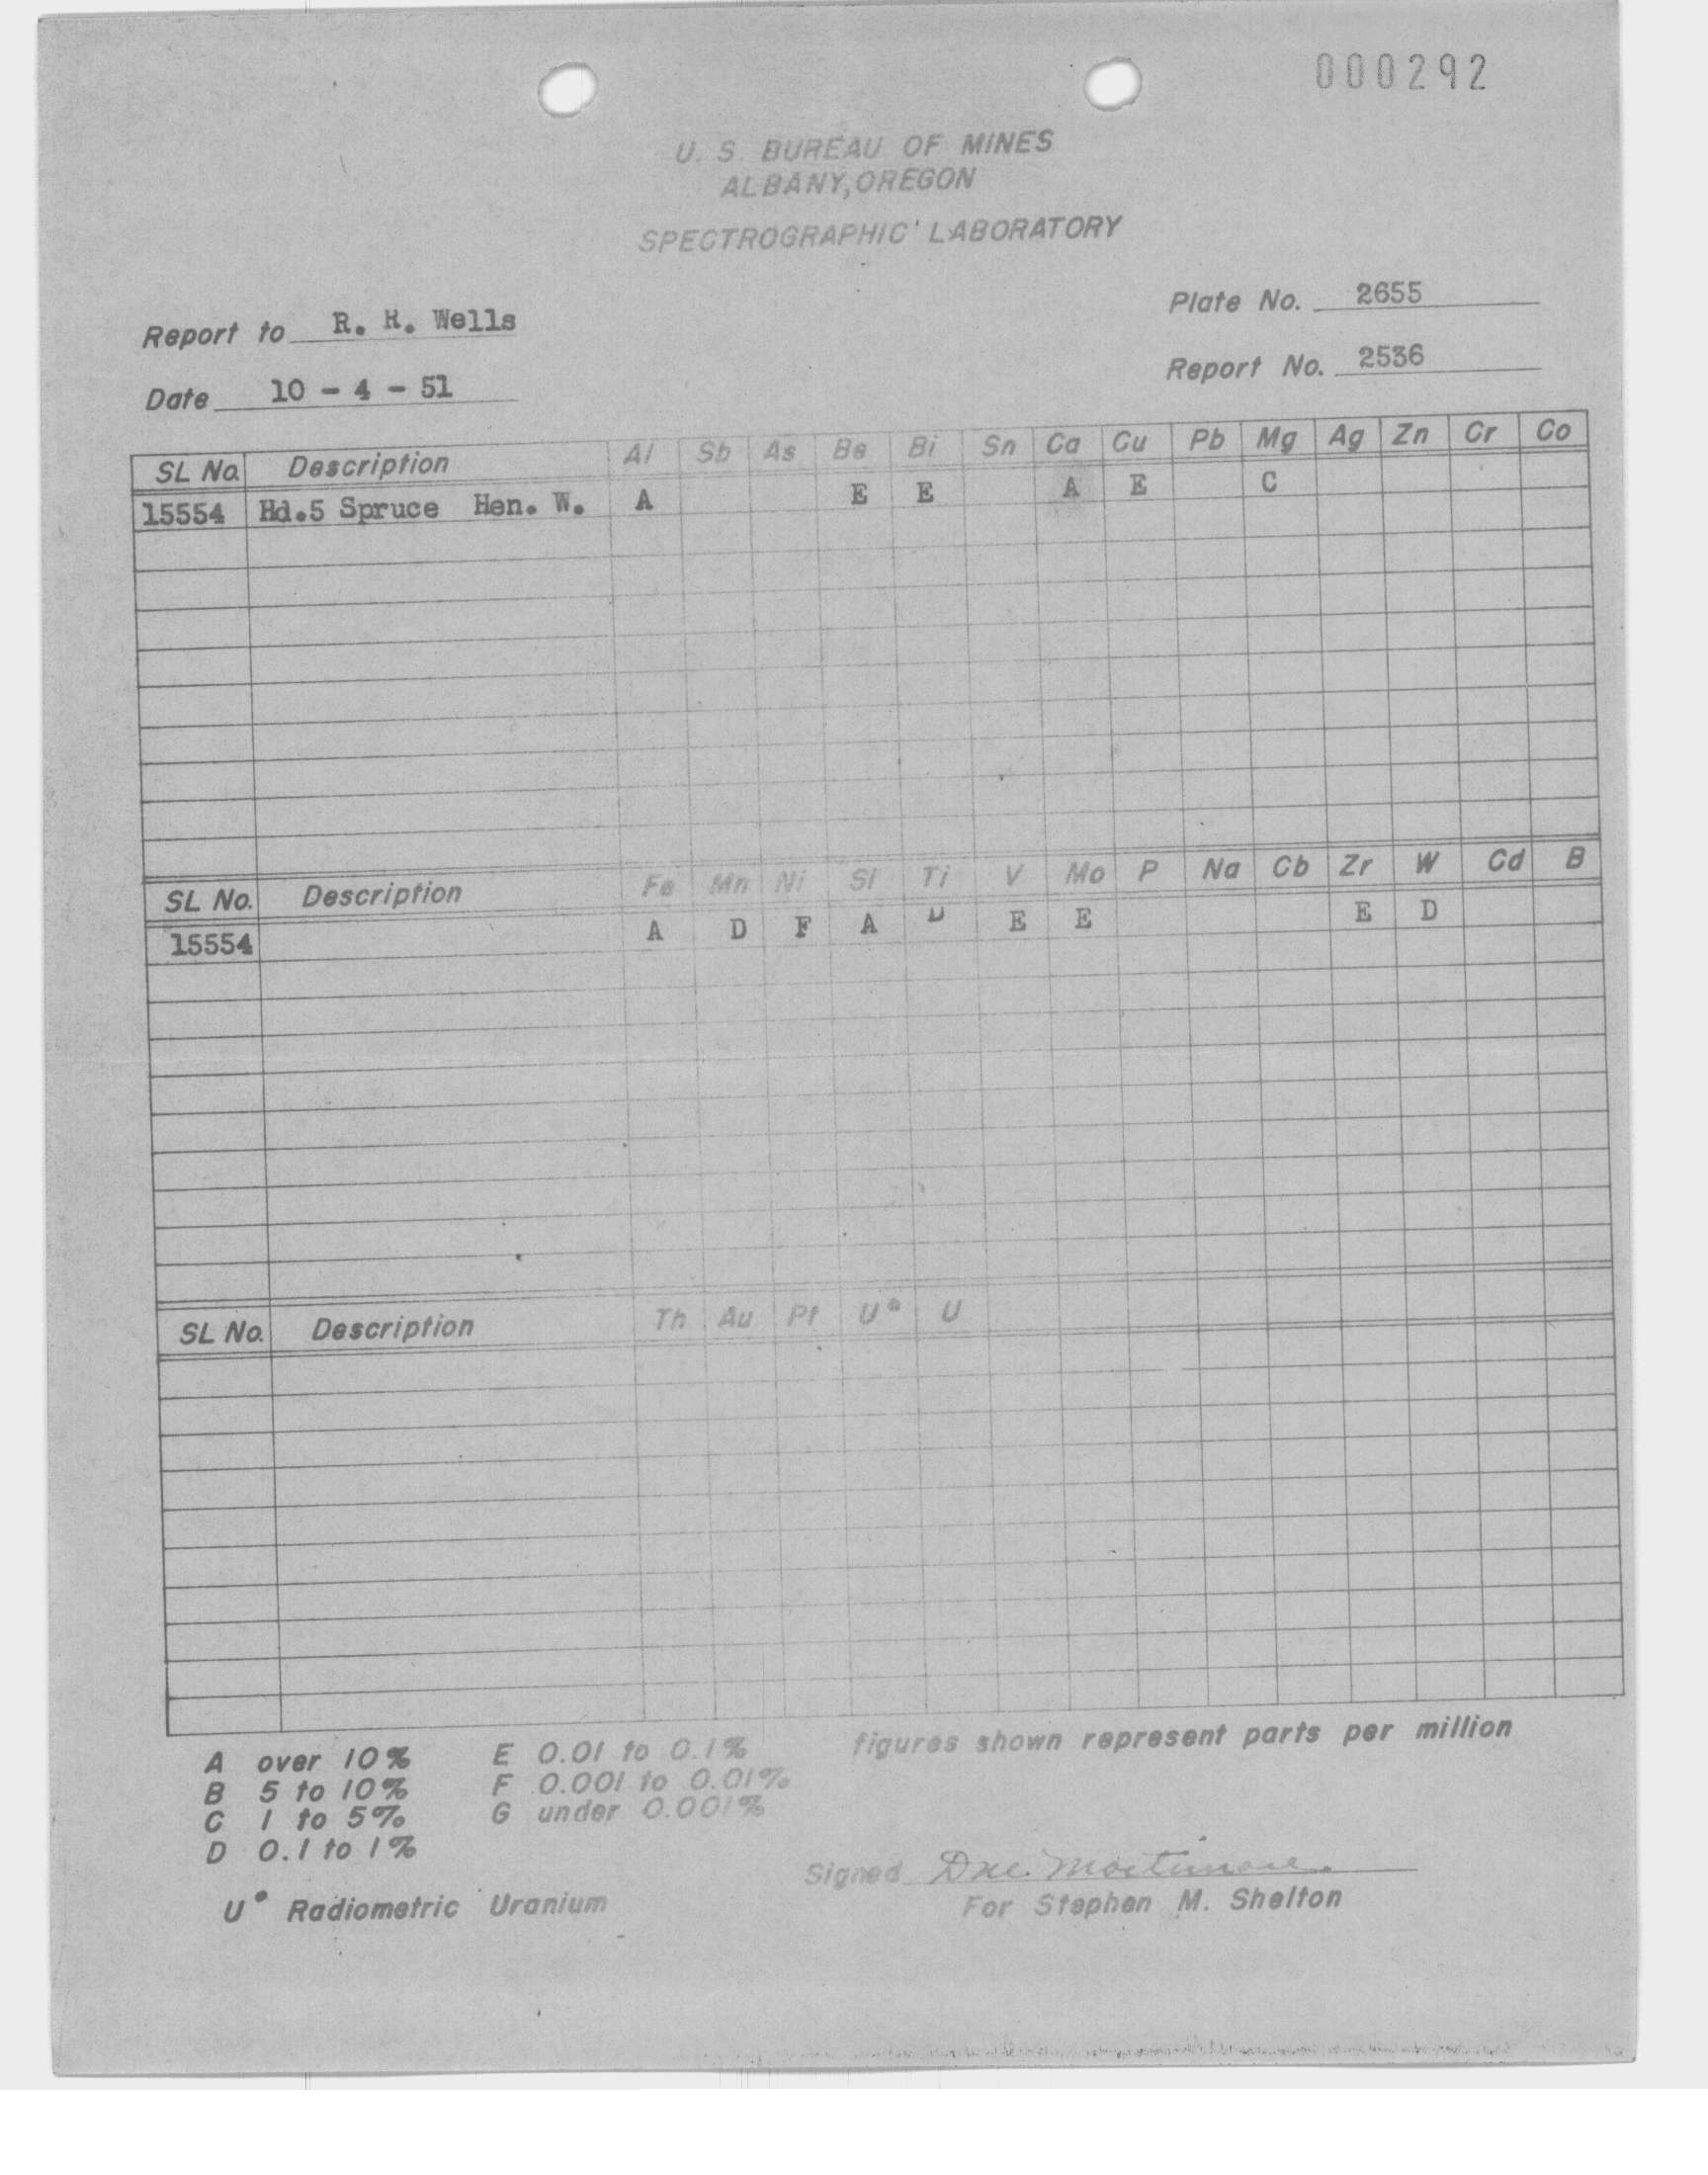 000292
U. S. BUREAU OF MINES
ALBANY, OREGON
SPECTROGRAPHIC LABORATORY
Plate No. 2655
Report to R. R. Wells
Report No. 2536
Date 10 - 4 - 51
SL No. Description Al Sb As Be Bi Sn Ca Cu Pb Mg Ag Zn Cr Co
15554 Hd.5 Spruce Hen. W. A E E A E C
SL No. Description Fe Mn Ni Si Ti V Mo P Na Cb Zr W Cd B
15554 A D F A D E E E D
SL No. Description Th Au Pt U* U
figures shown represent parts per million
A over 10% E 0.01 to 0.1%
B 5 to 10% F 0.001 to 0.01%
C 1 to 5% G under 0.001%
D 0.1 to 1%
Signed Mortimore
U* Radiometric Uranium
For Stephen M. Shelton